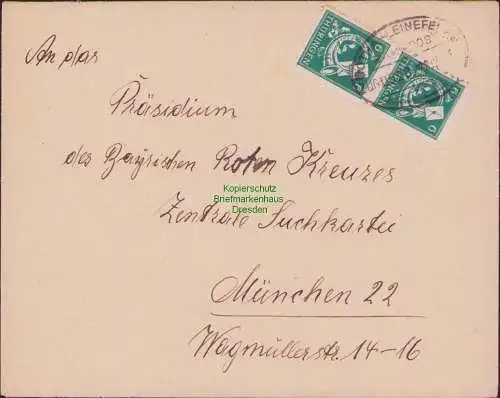 An das
Präsidium
des Bayrischen Roten Kreuzes
Zentrale Suchkartei
München 22
Wagmüllerstr. 14-16
THÜRINGEN
THÜRINGEN
LEINEFEL
Kopierschutz
Briefmarkenhaus
Dresden